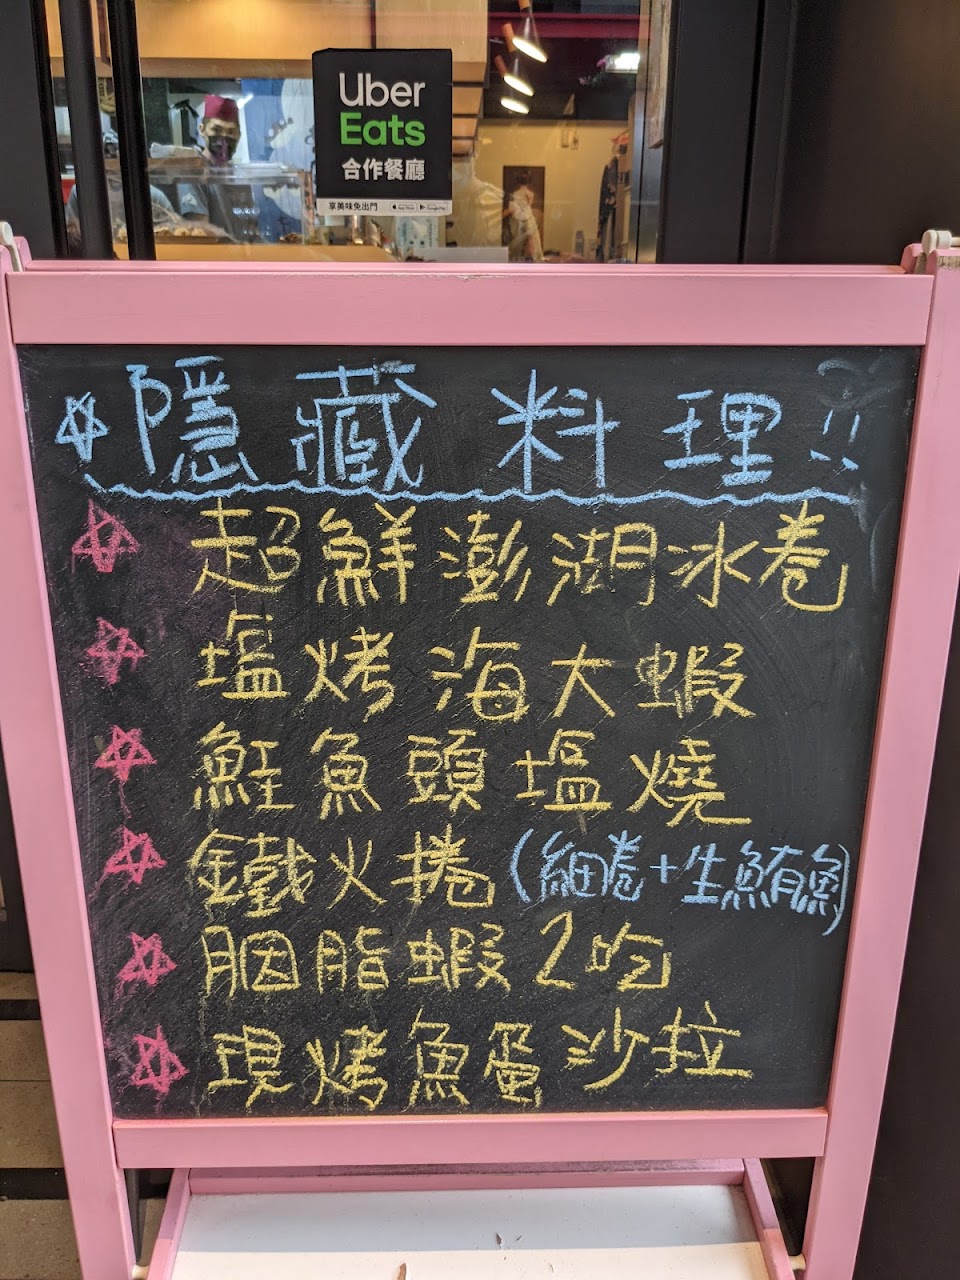 Uber
Eats
合作餐廳
享美味免出門
☆隱藏料理!!
☆超鮮澎湖冰卷
☆塩烤海大蝦
☆鮭魚頭塩燒
☆鐵火捲(細卷+生鮪魚)
☆胭脂蝦2吃
☆現烤魚蛋沙拉